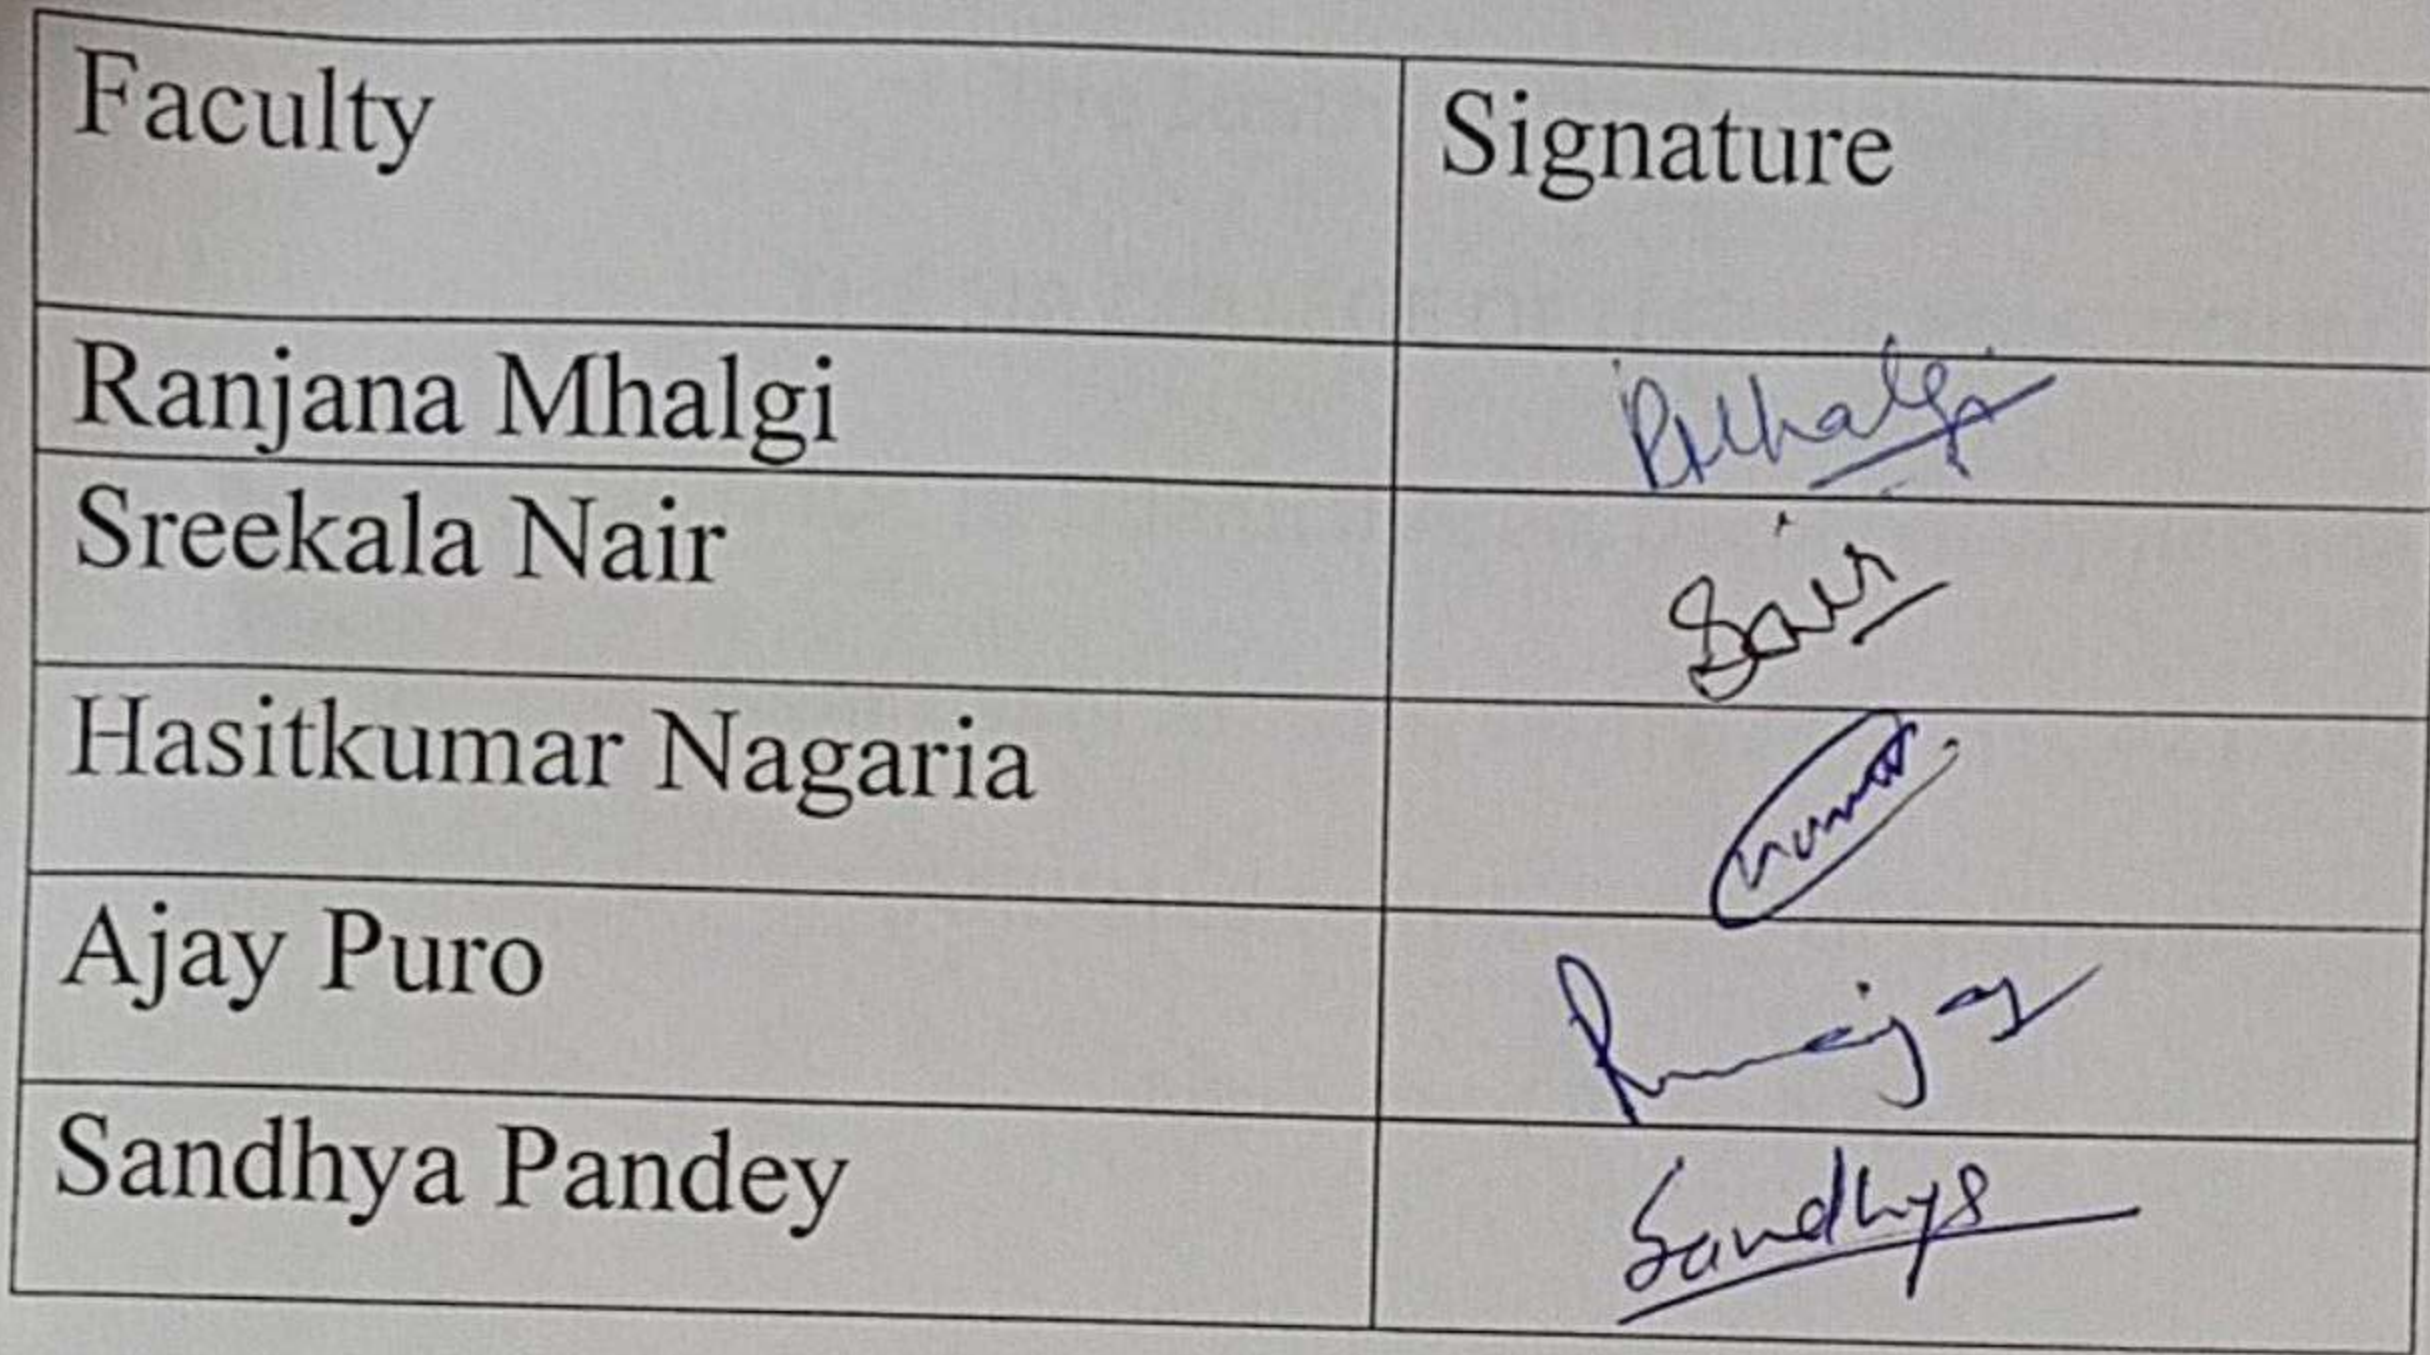 Faculty Signature
Ranjana Mhalgi RMhalgi
Sreekala Nair SNair
Hasitkumar Nagaria
Ajay Puro
Sandhya Pandey Sandhya